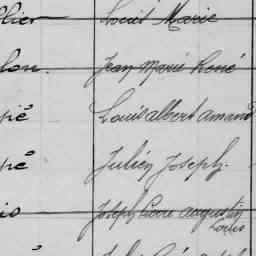 Louis Marie
lon. Jean Marie René
Louis albert amand
Julien Joseph.
Joseph Pierre augustin
Louis